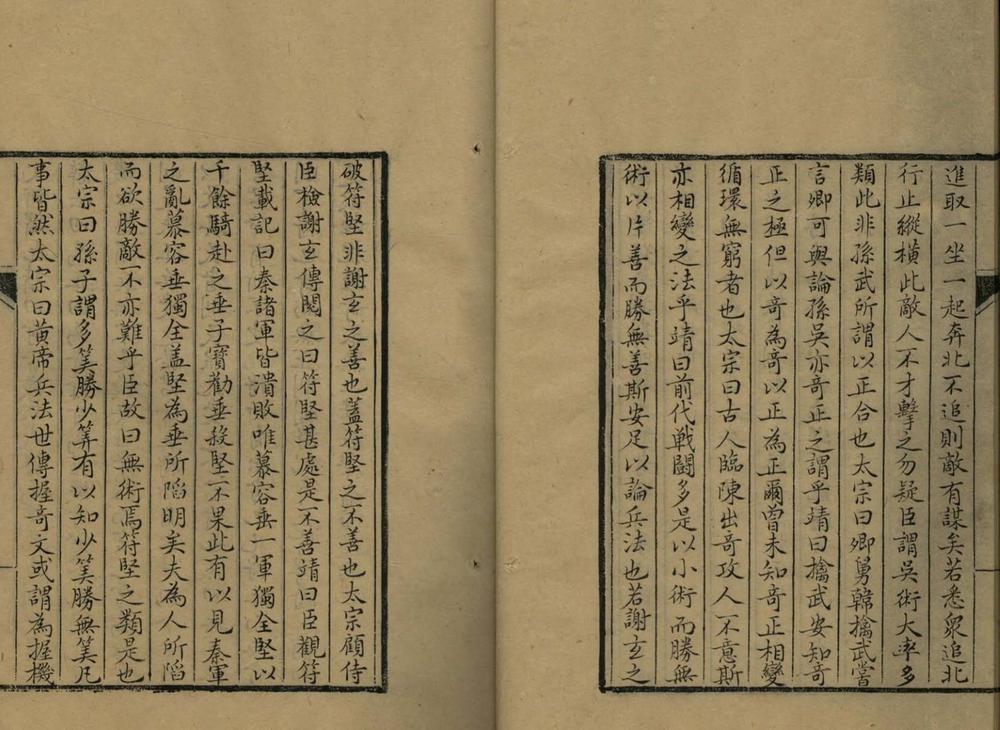 進取一坐一起奔北不追則敵有謀矣若悉衆追北
行止縱横此敵人不才擊之勿疑臣謂吳術大率多
類此非孫武所謂以正合也太宗曰卿舅韓擒武嘗
言卿可與論孫吳亦奇正之謂乎靖曰擒武安知奇
正之極但以奇為奇以正為正爾曾未知奇正相變
循環無窮者也太宗曰古人臨陳出奇攻人不意斯
亦相變之法乎靖曰前代戰鬪多是以小術而勝無
術以片善而勝無善斯安足以論兵法也若謝玄之
破符堅非謝玄之善也蓋符堅之不善也太宗顧侍
臣檢謝玄傳閱之曰符堅甚處是不善靖曰臣觀符
堅載記曰秦諸軍皆潰敗唯慕容垂一軍獨全堅以
千餘騎赴之垂子寶勸垂殺堅不果此有以見秦軍
之亂慕容垂獨全蓋堅為垂所陷明矣夫為人所陷
而欲勝敵不亦難乎臣故曰無術焉符堅之類是也
太宗曰孫子謂多筭勝少筭有以知少筭勝無筭凡
事皆然太宗曰黃帝兵法世傳握奇文或謂為握機